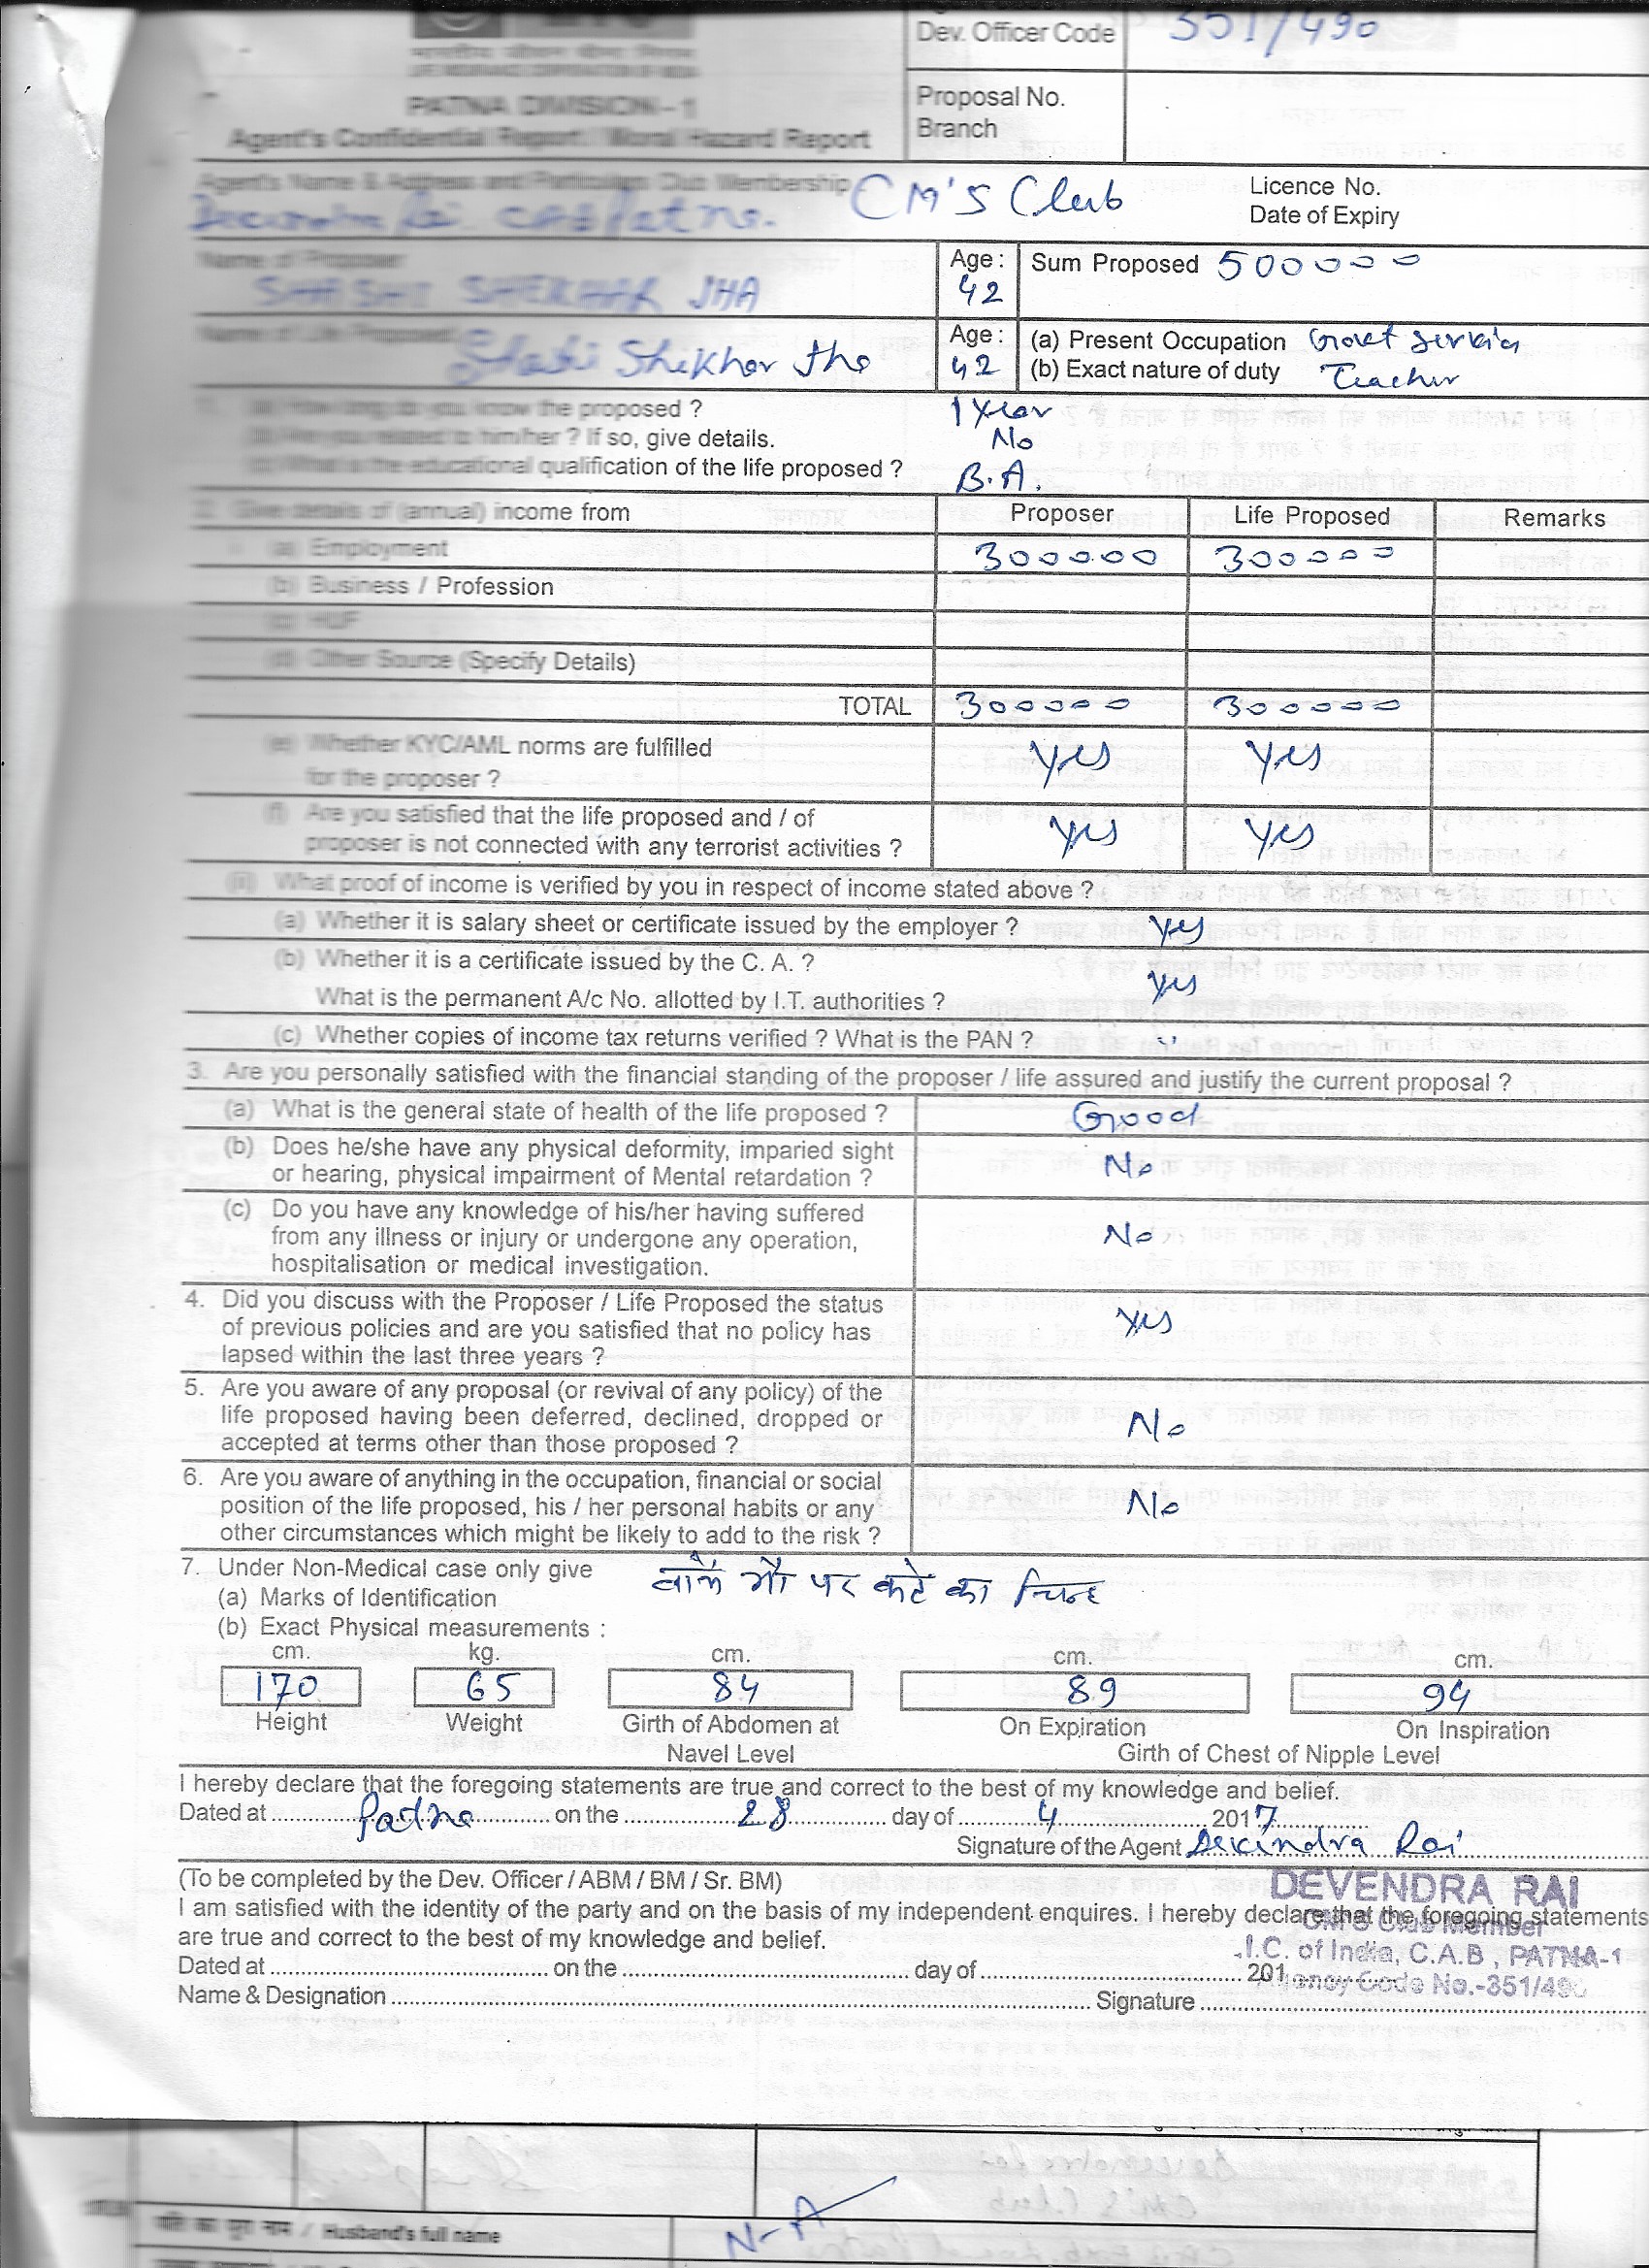 Dev. Officer Code 351/490
भारतीय जीवन बीमा निगम
LIFE INSURANCE CORPORATION OF INDIA
PATNA DIVISION-1
Proposal No.
Branch
Agent's Confidential Report / Moral Hazard Report
Agent's Name & Address and Particulars Club Membership CM'S Club
Licence No.
Date of Expiry
Name of Proposer
SHASHI SHEKHAR JHA
Age : 42
Sum Proposed 500000
Name of Life Proposed Shashi Shekhar Jha
Age : 42
(a) Present Occupation Govt Service
(b) Exact nature of duty Teacher
1. (a) How long do you know the proposed ? 1 Year
(b) Are you related to him/her ? If so, give details. No
(c) What is the educational qualification of the life proposed ? B.A.
2. Give details of (annual) income from Proposer Life Proposed Remarks
(a) Employment 300000 300000
(b) Business / Profession
(c) HUF
(d) Other Source (Specify Details)
TOTAL 300000 300000
(e) Whether KYC/AML norms are fulfilled
for the proposer ? Yes Yes
(f) Are you satisfied that the life proposed and / of
proposer is not connected with any terrorist activities ? Yes Yes
(ii) What proof of income is verified by you in respect of income stated above ?
(a) Whether it is salary sheet or certificate issued by the employer ? Yes
(b) Whether it is a certificate issued by the C. A. ?
What is the permanent A/c No. allotted by I.T. authorities ? Yes
(c) Whether copies of income tax returns verified ? What is the PAN ? "
3. Are you personally satisfied with the financial standing of the proposer / life assured and justify the current proposal ?
(a) What is the general state of health of the life proposed ? Good
(b) Does he/she have any physical deformity, imparied sight
or hearing, physical impairment of Mental retardation ? No
(c) Do you have any knowledge of his/her having suffered
from any illness or injury or undergone any operation, No
hospitalisation or medical investigation.
4. Did you discuss with the Proposer / Life Proposed the status
of previous policies and are you satisfied that no policy has Yes
lapsed within the last three years ?
5. Are you aware of any proposal (or revival of any policy) of the
life proposed having been deferred, declined, dropped or No
accepted at terms other than those proposed ?
6. Are you aware of anything in the occupation, financial or social
position of the life proposed, his / her personal habits or any No
other circumstances which might be likely to add to the risk ?
7. Under Non-Medical case only give
(a) Marks of Identification पर कटे का चिन्ह
(b) Exact Physical measurements :
cm. kg. cm. cm. cm.
170 65 84 89 94
Height Weight Girth of Abdomen at On Expiration On Inspiration
Navel Level Girth of Chest of Nipple Level
I hereby declare that the foregoing statements are true and correct to the best of my knowledge and belief.
Dated at Patna on the 28 day of 4 2017
Signature of the Agent Devendra Rai
(To be completed by the Dev. Officer / ABM / BM / Sr. BM)
DEVENDRA RAI
I am satisfied with the identity of the party and on the basis of my independent enquires. I hereby declare that the foregoing statements
CM'S Club Member
are true and correct to the best of my knowledge and belief.
L.I.C. of India, C.A.B, PATNA-1
Dated at on the day of 201
Agency Code No.-351/490
Name & Designation Signature
पति का पूरा नाम / Husband's full name N-A